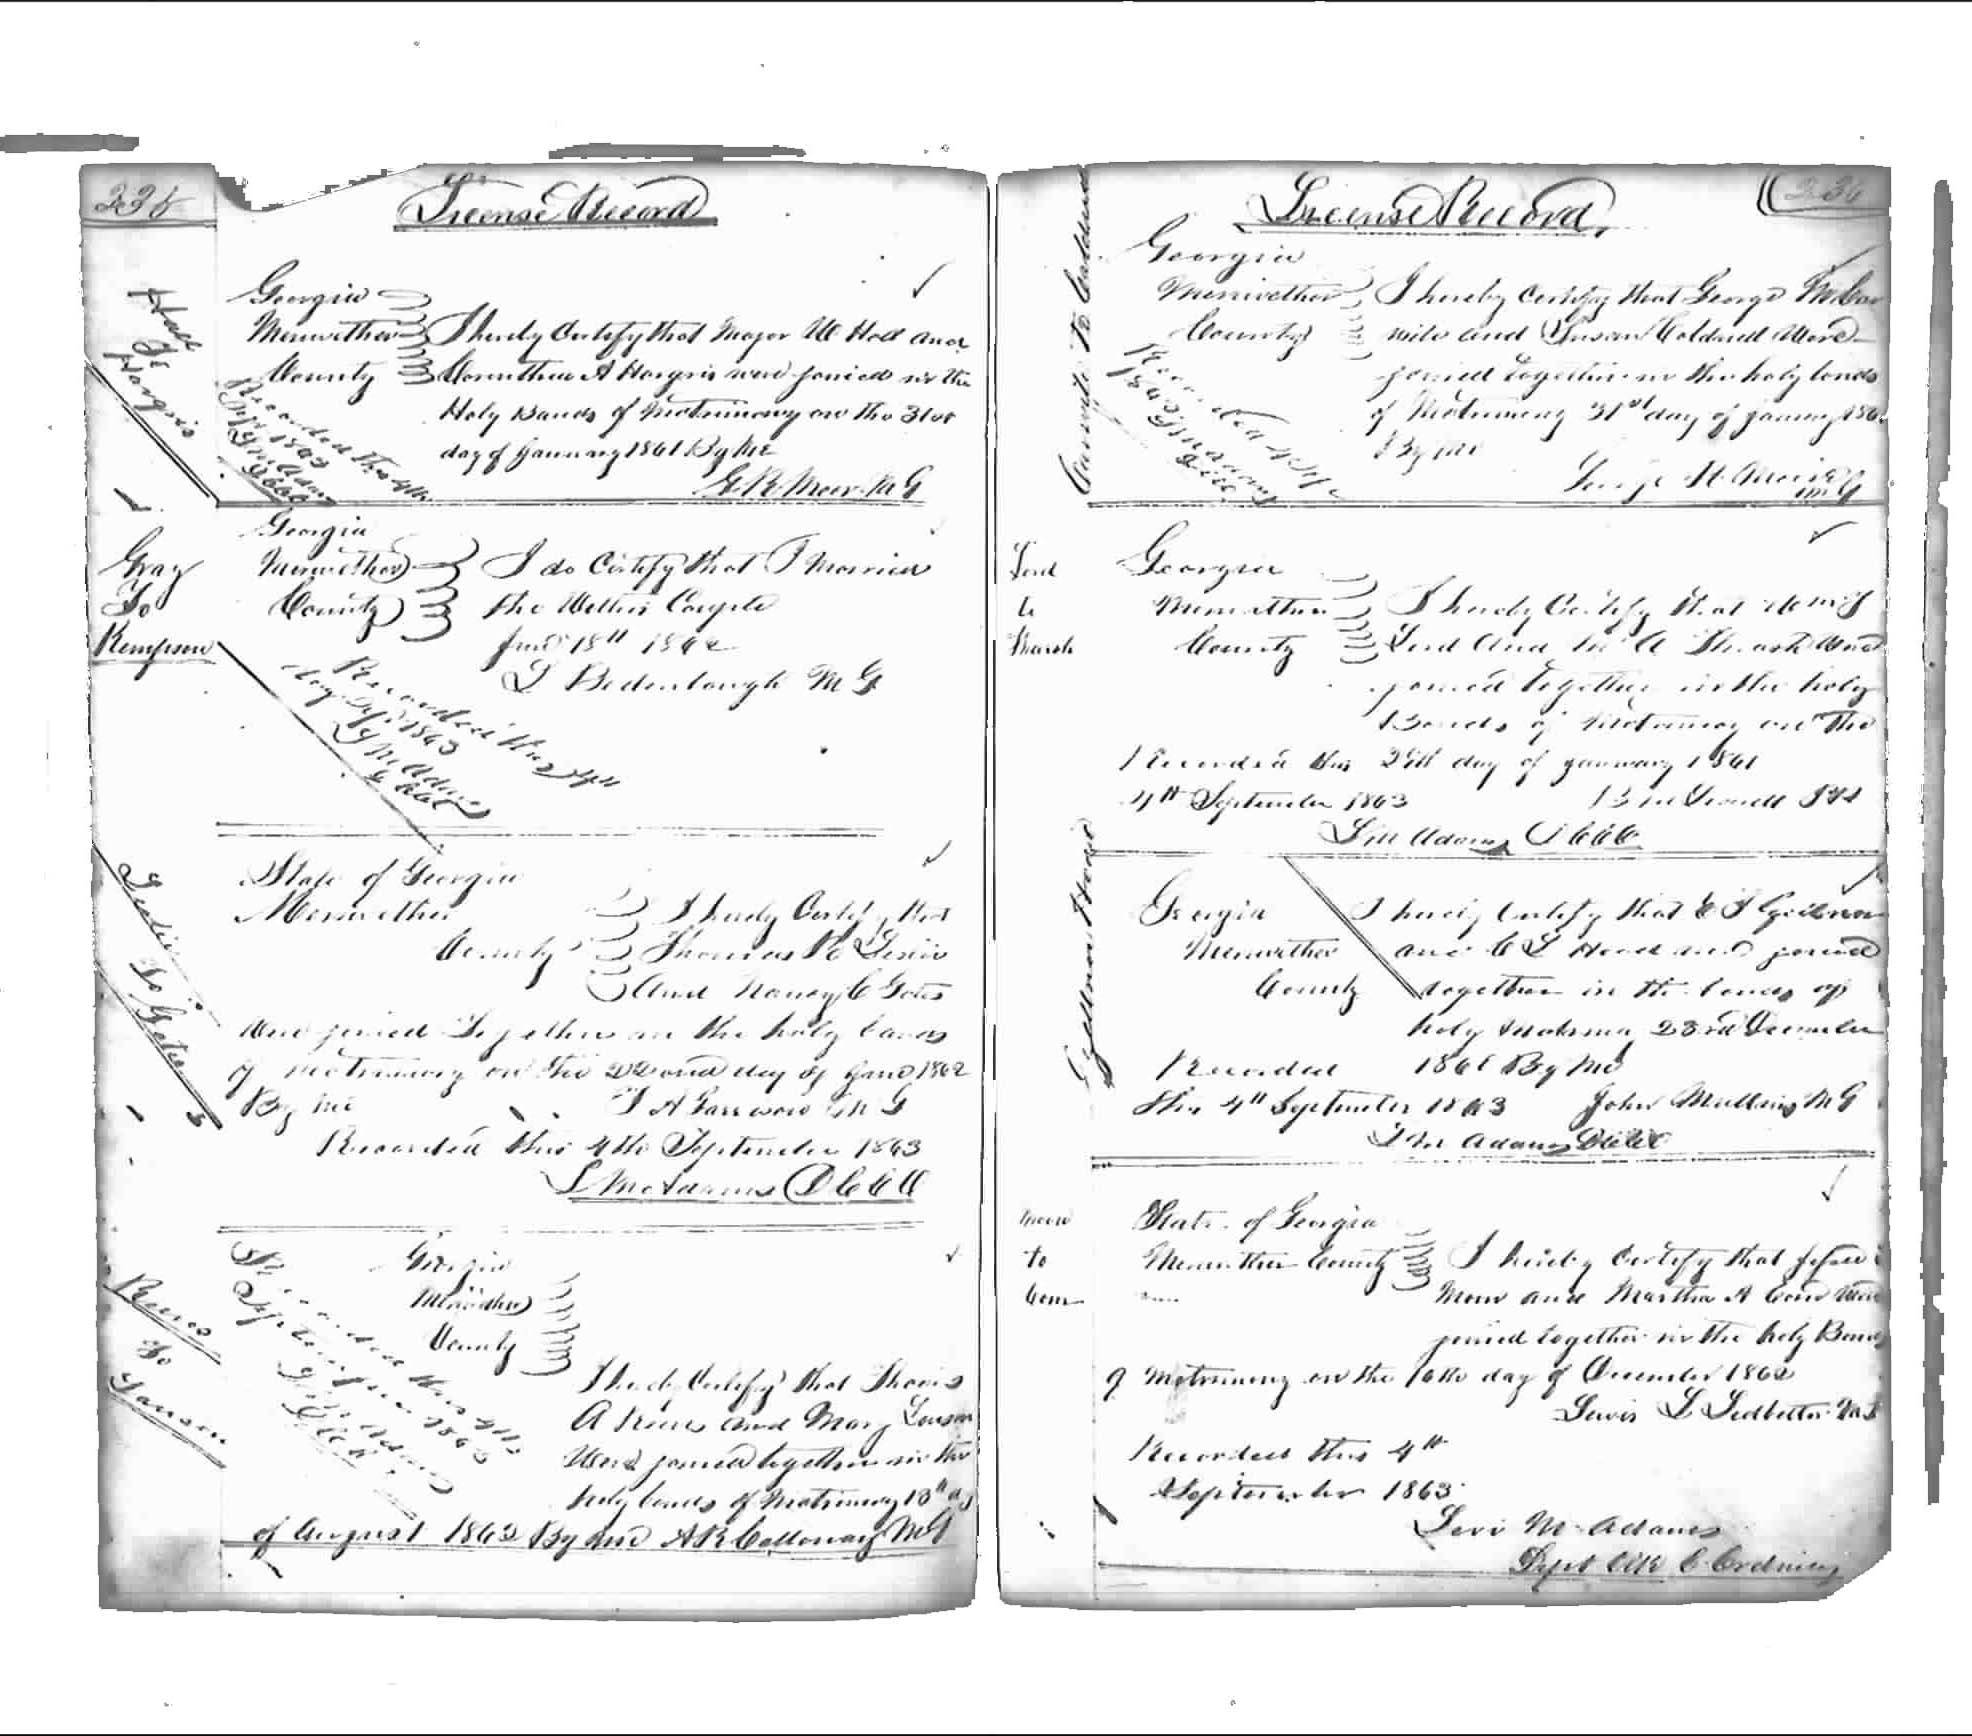 License Record
Hall
To
Hargris
Georgia
Meriwether
County
I hereby Certify that Major W Hall and
Corinthia A Hargris were joined in the
Holy Bands of Matrimony on the 31st
day of January 1861 By Me
G. R. Moor. M G
Recorded this 4th
Sept 1863
L M Adams
D CCO
Gray
To
Kempson
Georgia
Meriwether
County
I do Certify that I Married
the Within Couple
Jan 15th 1862
L Bedenbaugh M G
Recorded this 4th
day Sept 1863
L M Adams
To Gates
State of Georgia
Meriwether
County
I hereby Certify that
Thomas
And Nancy C Gates
were joined Together in the holy bands
of Matrimony on the 22ond day of Jan 1862
By me
M G
Recorded this 4th September 1863
L M Adams D C C O
Reeves
To
Georgia
Meriwether
County
I hereby Certify that Thomas
A Reeves and Mary
Were joined together in the
holy bands of Matrimony 13th day
of August 1863 By me A R Calloway MG
Recorded this 4th
September 1863
License Record
236
to Caldwell
Georgia
Meriwether
County
I hereby Certify that George
and Susan Were
joined together in the holy bonds
of Matrimony 31st day of January 186
By me
George
M G
to
Georgia
Meriwether
County
I hereby Certify that
and A Thrash were
joined together in the holy
Bonds of Matrimony on the
29th day of January 1861
Recorded this
4th September 1863
L M Adams D CCO
Georgia
Meriwether
County
I hereby Certify that
and C L Head were joined
together in the bonds of
holy Matrimony 23rd December
1861 By Me
John Mullins M G
Recorded
this 4th September 1863
L M Adams
Moor
to
State of Georgia
Meriwether County
I hereby Certify that Jesse
Moor and Martha A were
joined together in the holy Bands
of Matrimony on the 16th day of December 1862
Lewis L Ledbetter
Recorded this 4th
September 1863
Levi M Adams
Dept Clk C Ordinary